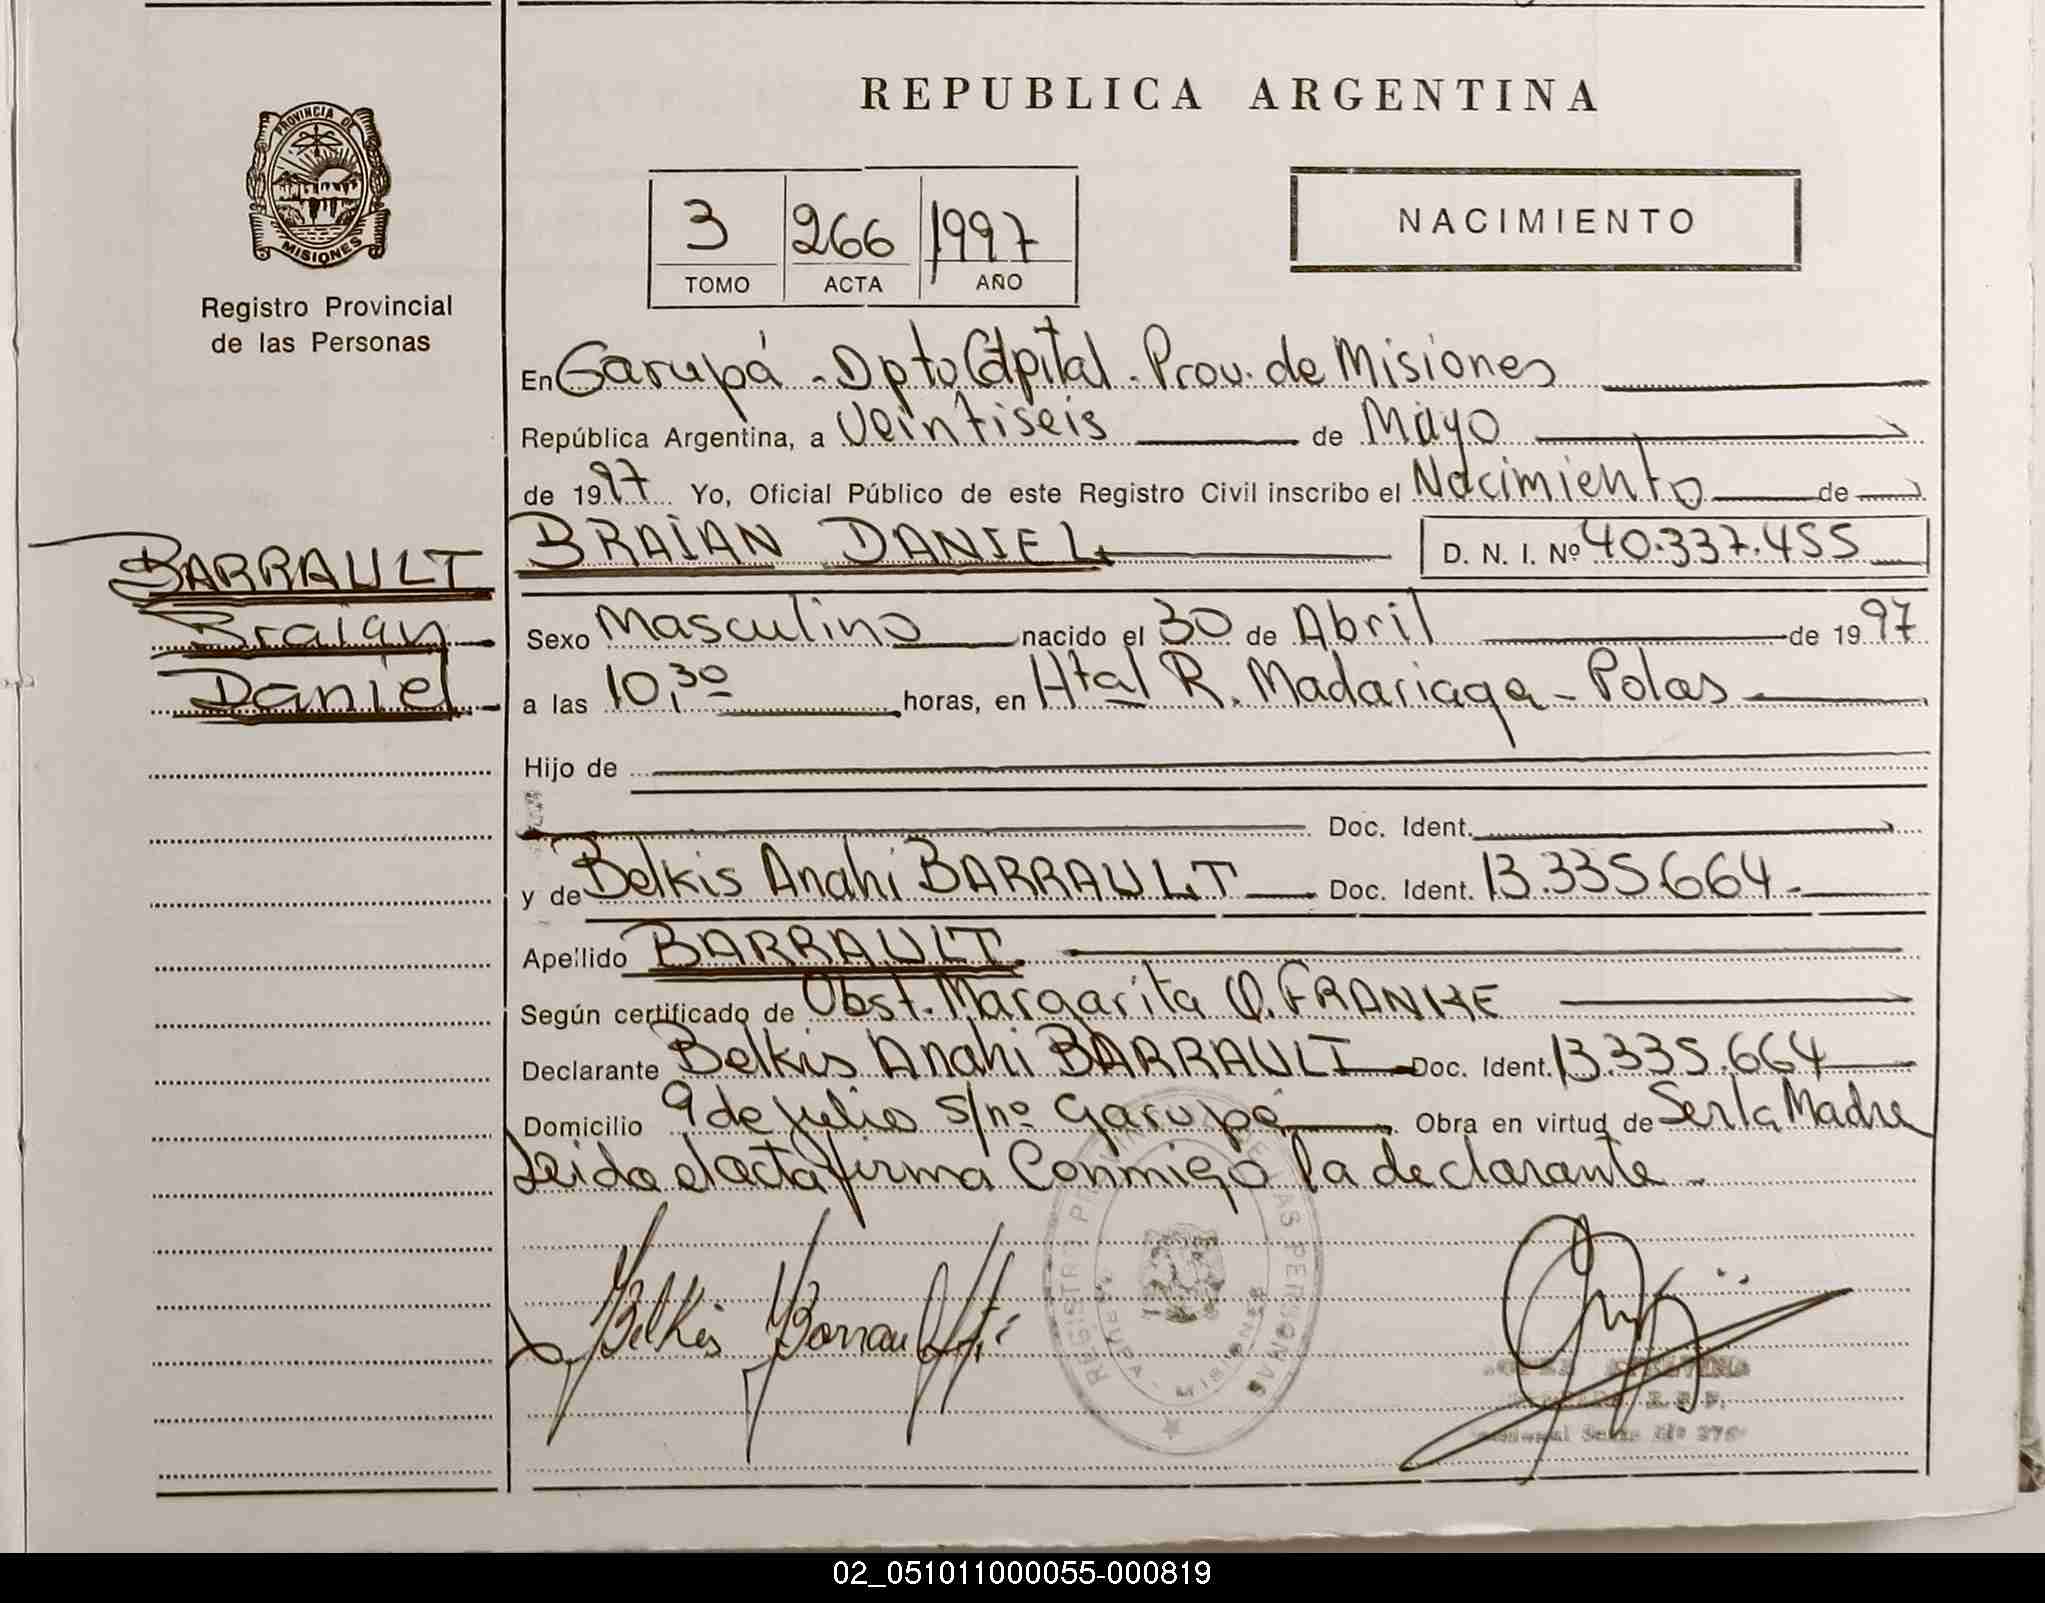 REPUBLICA ARGENTINA
PROVINCIA DE
MISIONES
Registro Provincial
de las Personas
3 266 1997
TOMO ACTA AÑO
NACIMIENTO
En Garupá - Dpto Capital - Prov. de Misiones
República Argentina, a Veintiseis de Mayo
de 1997 Yo, Oficial Público de este Registro Civil inscribo el Nacimiento de
BARRAULT
Braian
Daniel
BRAIAN DANIEL D. N. I. Nº 40.337.455
Sexo Masculino nacido el 30 de Abril de 1997
a las 10,30 horas, en Htal R. Madariaga - Pdas
Hijo de
Doc. Ident.
y de Belkis Anahi BARRAULT Doc. Ident. 13.335.664
Apellido BARRAULT
Según certificado de Obst. Margarita Q. FRANKE
Declarante Belkis Anahi BARRAULT Doc. Ident. 13.335.664
Domicilio 9 de julio s/nº Garupá Obra en virtud de Ser la Madre
Leida el acta firma Conmigo la declarante
Belkis Barrault
REGISTRO PROVINCIAL DE LAS PERSONAS
MISIONES
02_051011000055-000819